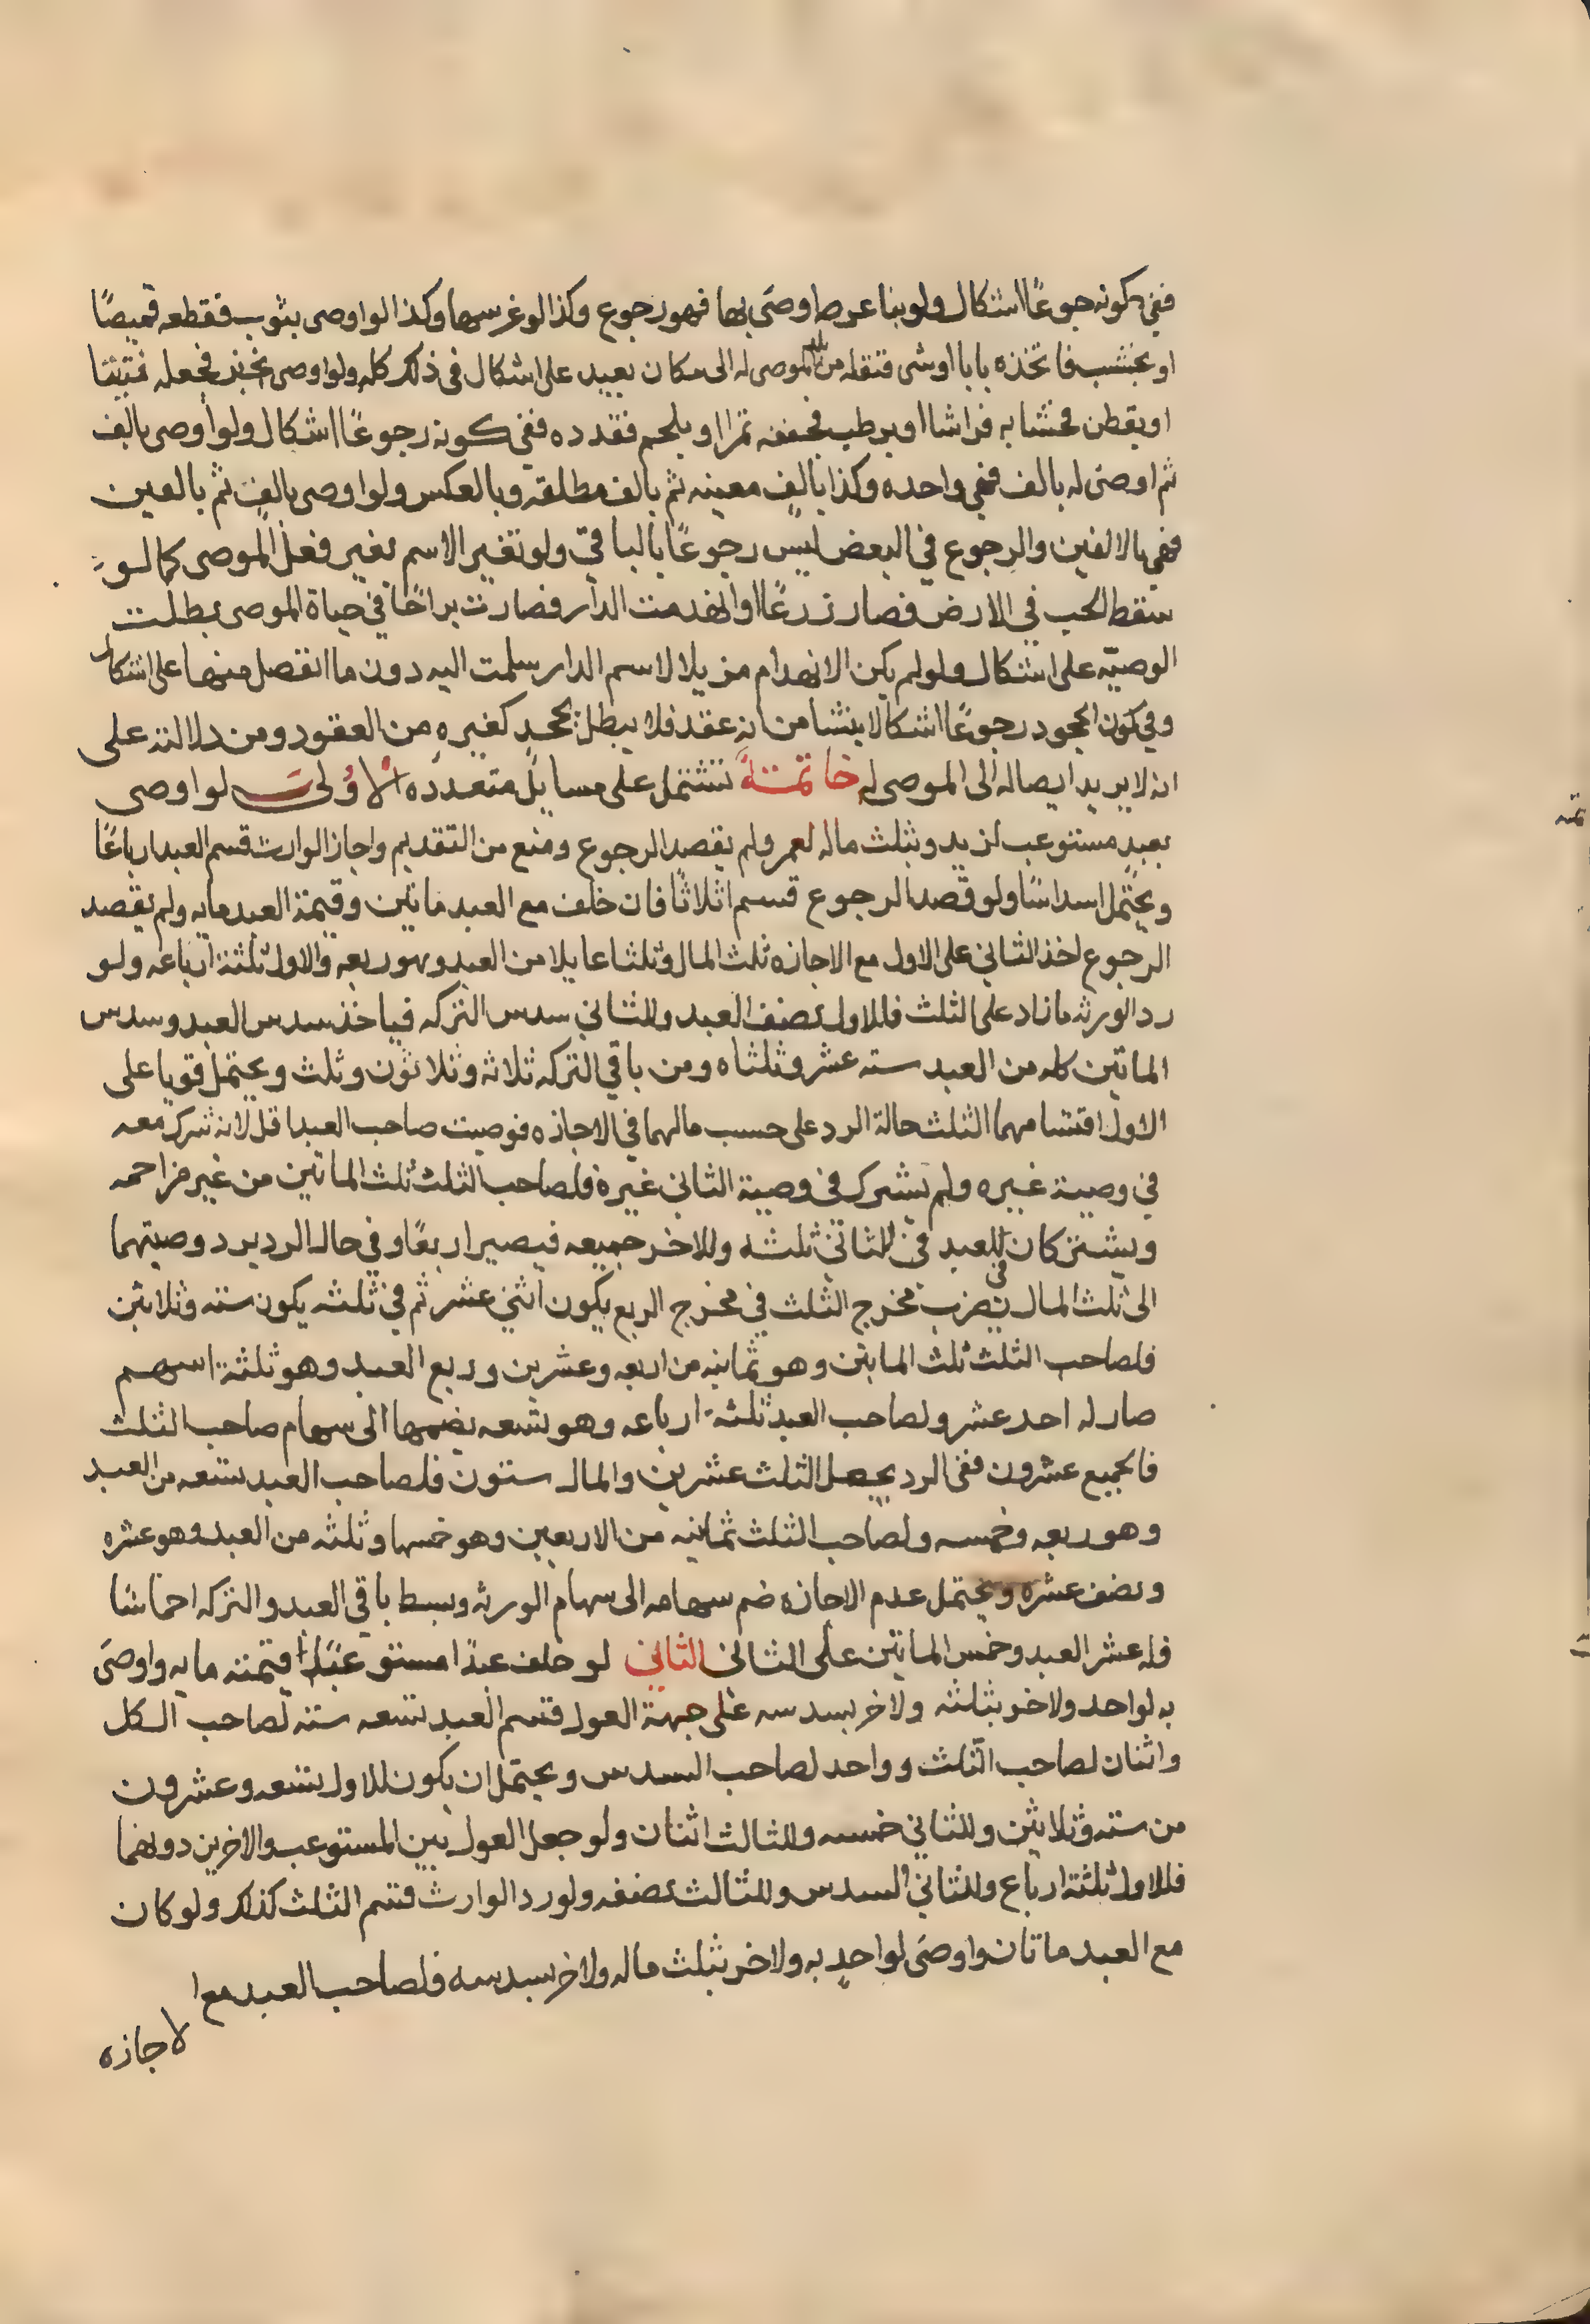 ففي كونه رجوعًا اشكال ولو بنا عرصه اوصَى بها فهو رجوع وكذا لو غرسها وكذا لو اوصى بثوب فقطعه قميصًا
او بخشب فاتخذه بابا او شى فنقله من بلد الموصى له الى مكان بعيد على اشكال فى ذلك كله ولو اوصى بخبز فجعله فتيتا
او بقطن فحشا به فراشا او برطب فجففه تمرا او بلحم فقدده ففي كونه رجوعًا اشكال ولو اوصى بالف
ثم اوصى له بالف فهي واحده وكذا بالفٍ معينه ثم بالف مطلقه وبالعكس ولو اوصى بالفٍ ثم بالفين
فهي بالالفين والرجوع في البعض ليس رجوعًا بالباقي ولو تغير الاسم بغير فعل الموصى كما لو
سقط الحب في الارض فصار زرعًا او انهدمت الدار فصارت براحًا في حياة الموصى بطلت
الوصيّه على اشكال ولو لم يكن الانهدام مزيلا لاسم الدار سلمت اليه دون ما انفصل منها على اشكال
وفي كون الجحود رجوعًا اشكالا ينشا من انه عقد فلا يبطل بجحدٍ كغيره من العقود ومن دلالته على
انه لا يريد ايصاله الى الموصى له خاتمةً تشتمل على مسايل متعدده الاُولى لو اوصى
بعبدٍ مستوعب لزيد وبثلث ماله لعمر ولم يقصد الرجوع ومنع من التقديم واجاز الوارث قسم العبد ارباعًا
ويحتمل اسداسًا ولو قصد الرجوع قسم اثلاثًا فان خلف مع العبد ماتين وقيمة العبد مايه ولم يقصد
الرجوع اخذ الثاني على الاول مع الاجازه ثلث المال وثلثا عايلا من العبد وهو ربعه والاول ثلثة ارباعه ولو
رد الورثه ما زاد على الثلث فللاول نصف العبد وللثاني سدس التركه فياخذ سدس العبد وسدس
الماتين كله من العبد سته عشر وثلثاه ومن باقي التركه ثلاثة وثلاثون وثلث ويحتمل قويا على
الاول اقتسامهما الثلث حالة الرد على حسب مالهما في الاجازه فوصيت صاحب العبد اقل لانه شرك معه
في وصية غيره ولم يشرك في وصية الثاني غيره فلصاحب الثلث ثلث الماتين من غير مزاحمه
ويشتركان في العبد للثاني ثلثه وللاخر جميعه فيصير اربعًا وفي حال الرد يرد وصيتهما
الى ثلث المال نضرب مخرج الثلث في مخرج الربع يكون اثني عشر ثم في ثلثه يكون سته وثلاثين
فلصاحب الثلث ثلث المايتين وهو ثمانيه من اربعه وعشرين وربع العبد وهو ثلثة اسهم
صار له احد عشر ولصاحب العبد ثلثه ارباعه وهو تسعه يضمها الى سهام صاحب الثلث
فالجميع عشرون ففي الرد يجعل الثلث عشرين والمال ستون فلصاحب العبد تسعه من العبد
وهو ربعه وخمسه ولصاحب الثلث ثمانيه من الاربعين وهو خمسها وثلثه من العبد وهو عشره
ونصف عشره ويحتمل عدم الاجازه ضم سهامه الى سهام الورثه وبسط باقي العبد والتركه اخماسًا
فله عشر العبد وخمس الماتين على الثانى الثاني لو خلف عبدًا مستوعبًا قيمته مايه واوصَى
به لواحد ولاخر بثلثه ولاخر بسدسه على جهة العول قسم العبد تسعه سته لصاحب الكل
واثنان لصاحب الثلث وواحد لصاحب السدس ويحتمل ان يكون للاول تسعه وعشرون
من سته وثلاثين وللثاني خمسه وللثالث اثنان ولو جعل العول بين المستوعب والاخرين دونهما
فللاول ثلثة ارباع وللثاني السدس وللثالث نصفه ولو رد الوارث قسم الثلث كذلك ولو كان
مع العبد ماتان واوصَى لواحدٍ به ولاخر بثلث ماله ولاخر بسدسه فلصاحب العبد مع ا
لاجازه